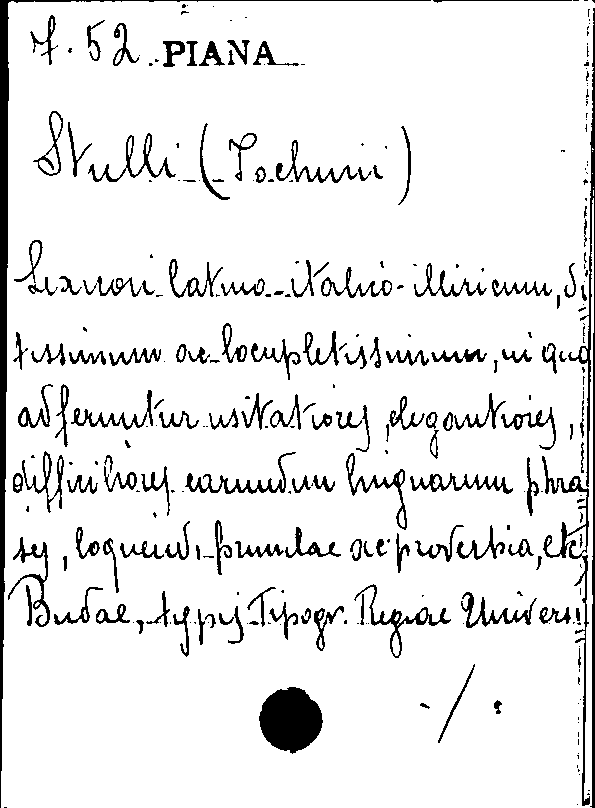 7.52 PIANA
Stulli (Jochimi)
Lexicon latino-italico-illiricum, di
tissimum ac locupletissimum, in quo
adferuntur usitatiores, elegantiores,
difficiliores earumdem linguarum phra
ses, loquendi formulae ac proverbia, etc.
Budae, typis Tipogr. Regiae Universi
./.